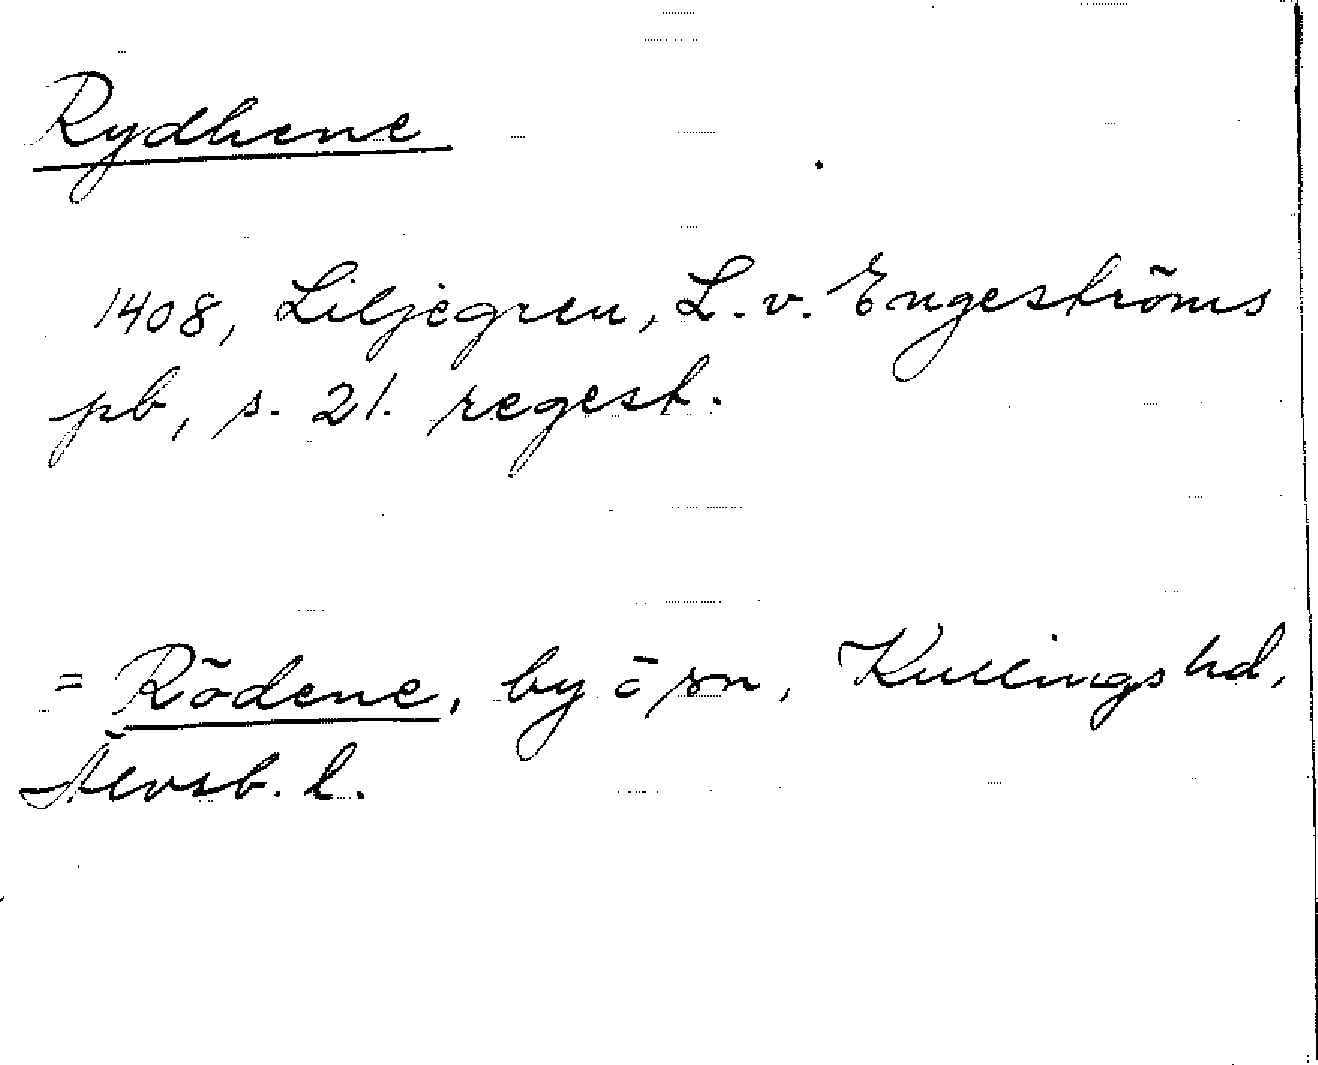 Rydhene
1408, Liljegren, L. v. Engeströms
pb, s. 21. regest.
= Rödene, by o sn, Kullings hd,
Älvsb. l.